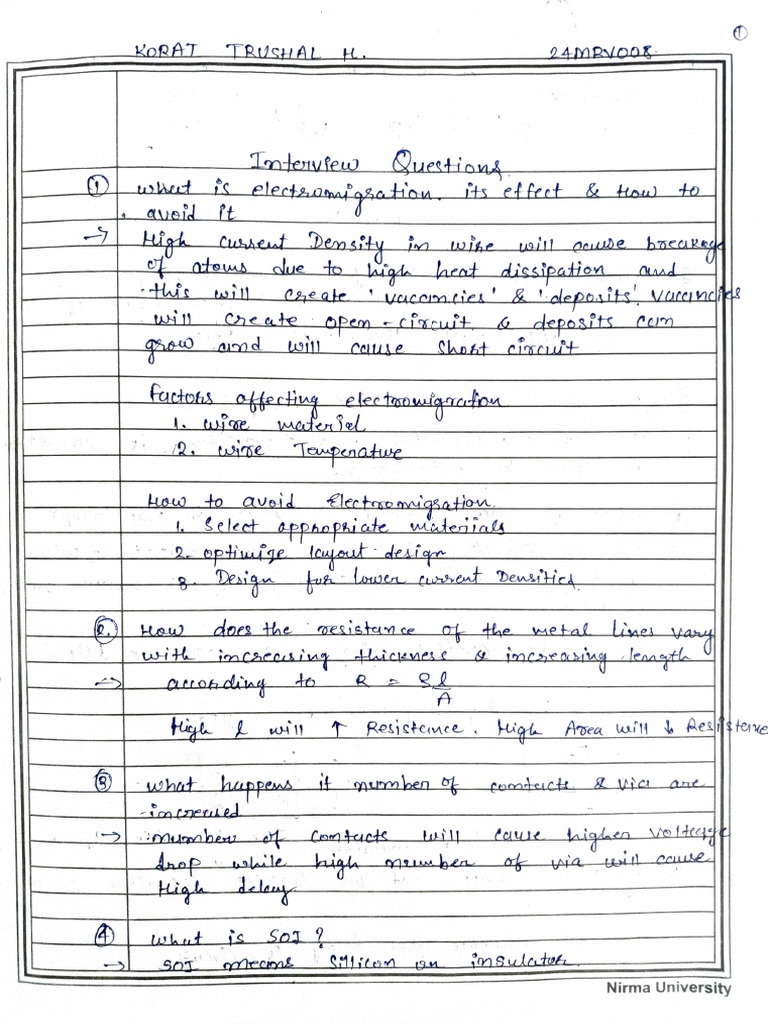 ①
KORAT TRUSHAL H. 24MRV008
Interview Questions
① what is electromigration. its effect & How to
avoid it
→ High current Density in wire will cause breakage
of atoms due to high heat dissipation and
this will create 'vaccancies' & 'deposits'. vaccancies
will create open-circuit & deposits can
grow and will cause short circuit
factors affecting electromigration
1. wire material
2. wire Temperature
How to avoid Electromigration.
1. Select appropriate materials
2. optimize layout design
3. Design for lower current Densities
②. How does the resistance of the metal lines vary
with increasing thickness & increasing length
→ according to R = ρl/A
High l will ↑ Resistance. High Area will ↓ Resistance
③ what happens if number of contacts & via are
increased
→ number of contacts will cause higher voltage
drop while high number of via will cause
High delay
④ what is SOI ?
→ SOI means Sillicon on insulator.
Nirma University